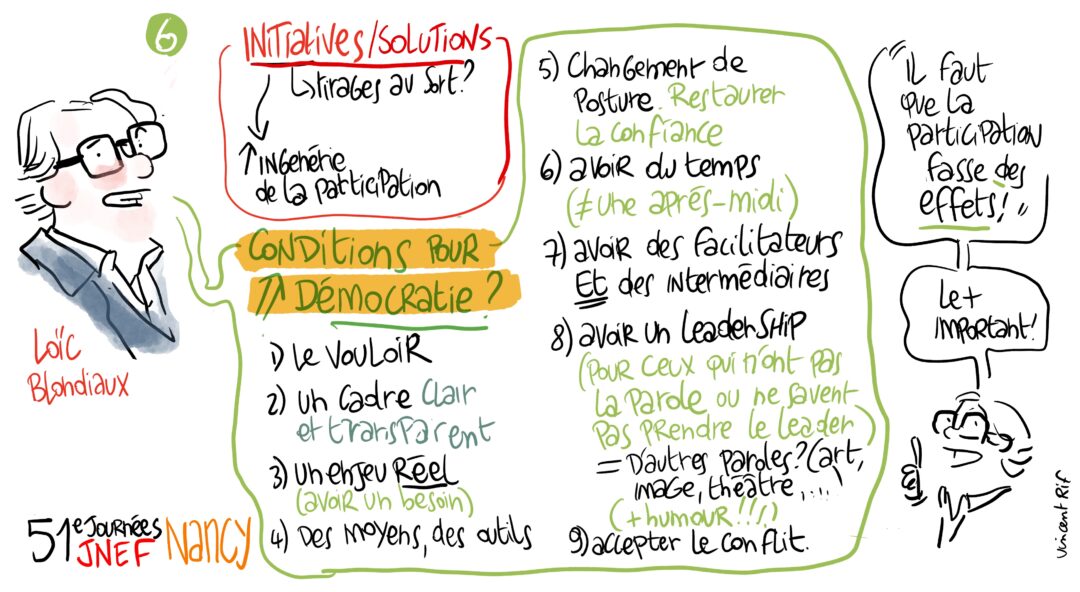 6
INITIATIVES/SOLUTIONS
↳ tirages au sort?
↑ INGENÉRIE
de la PARTICIPATION
CONDITIONS POUR
↑↑ DÉMOCRATIE ?
1) Le VOULOIR
2) un cadre clair
et transparent
3) un enjeu RÉEL
(avoir un besoin)
4) Des moyens, des outils
5) Changement de
Posture. Restaurer
la confiance
6) avoir du temps
(≠ une aprés-midi)
7) avoir des facilitateurs
Et des intermédiaires
8) avoir un leaderSHIP
(Pour ceux qui n'ont pas
la parole ou ne savent
pas prendre le leader)
= D'autres paroles? (art,
image, théâtre,....)
(+ humour!!!)
9) accepter le conflit.
"IL faut
que la
PARTICIPATION
fasse des
effets!"
Le +
IMPORTANT!
Loïc
Blondiaux
51e JOURNÉES
JNEF NANCY
Vincent Rif